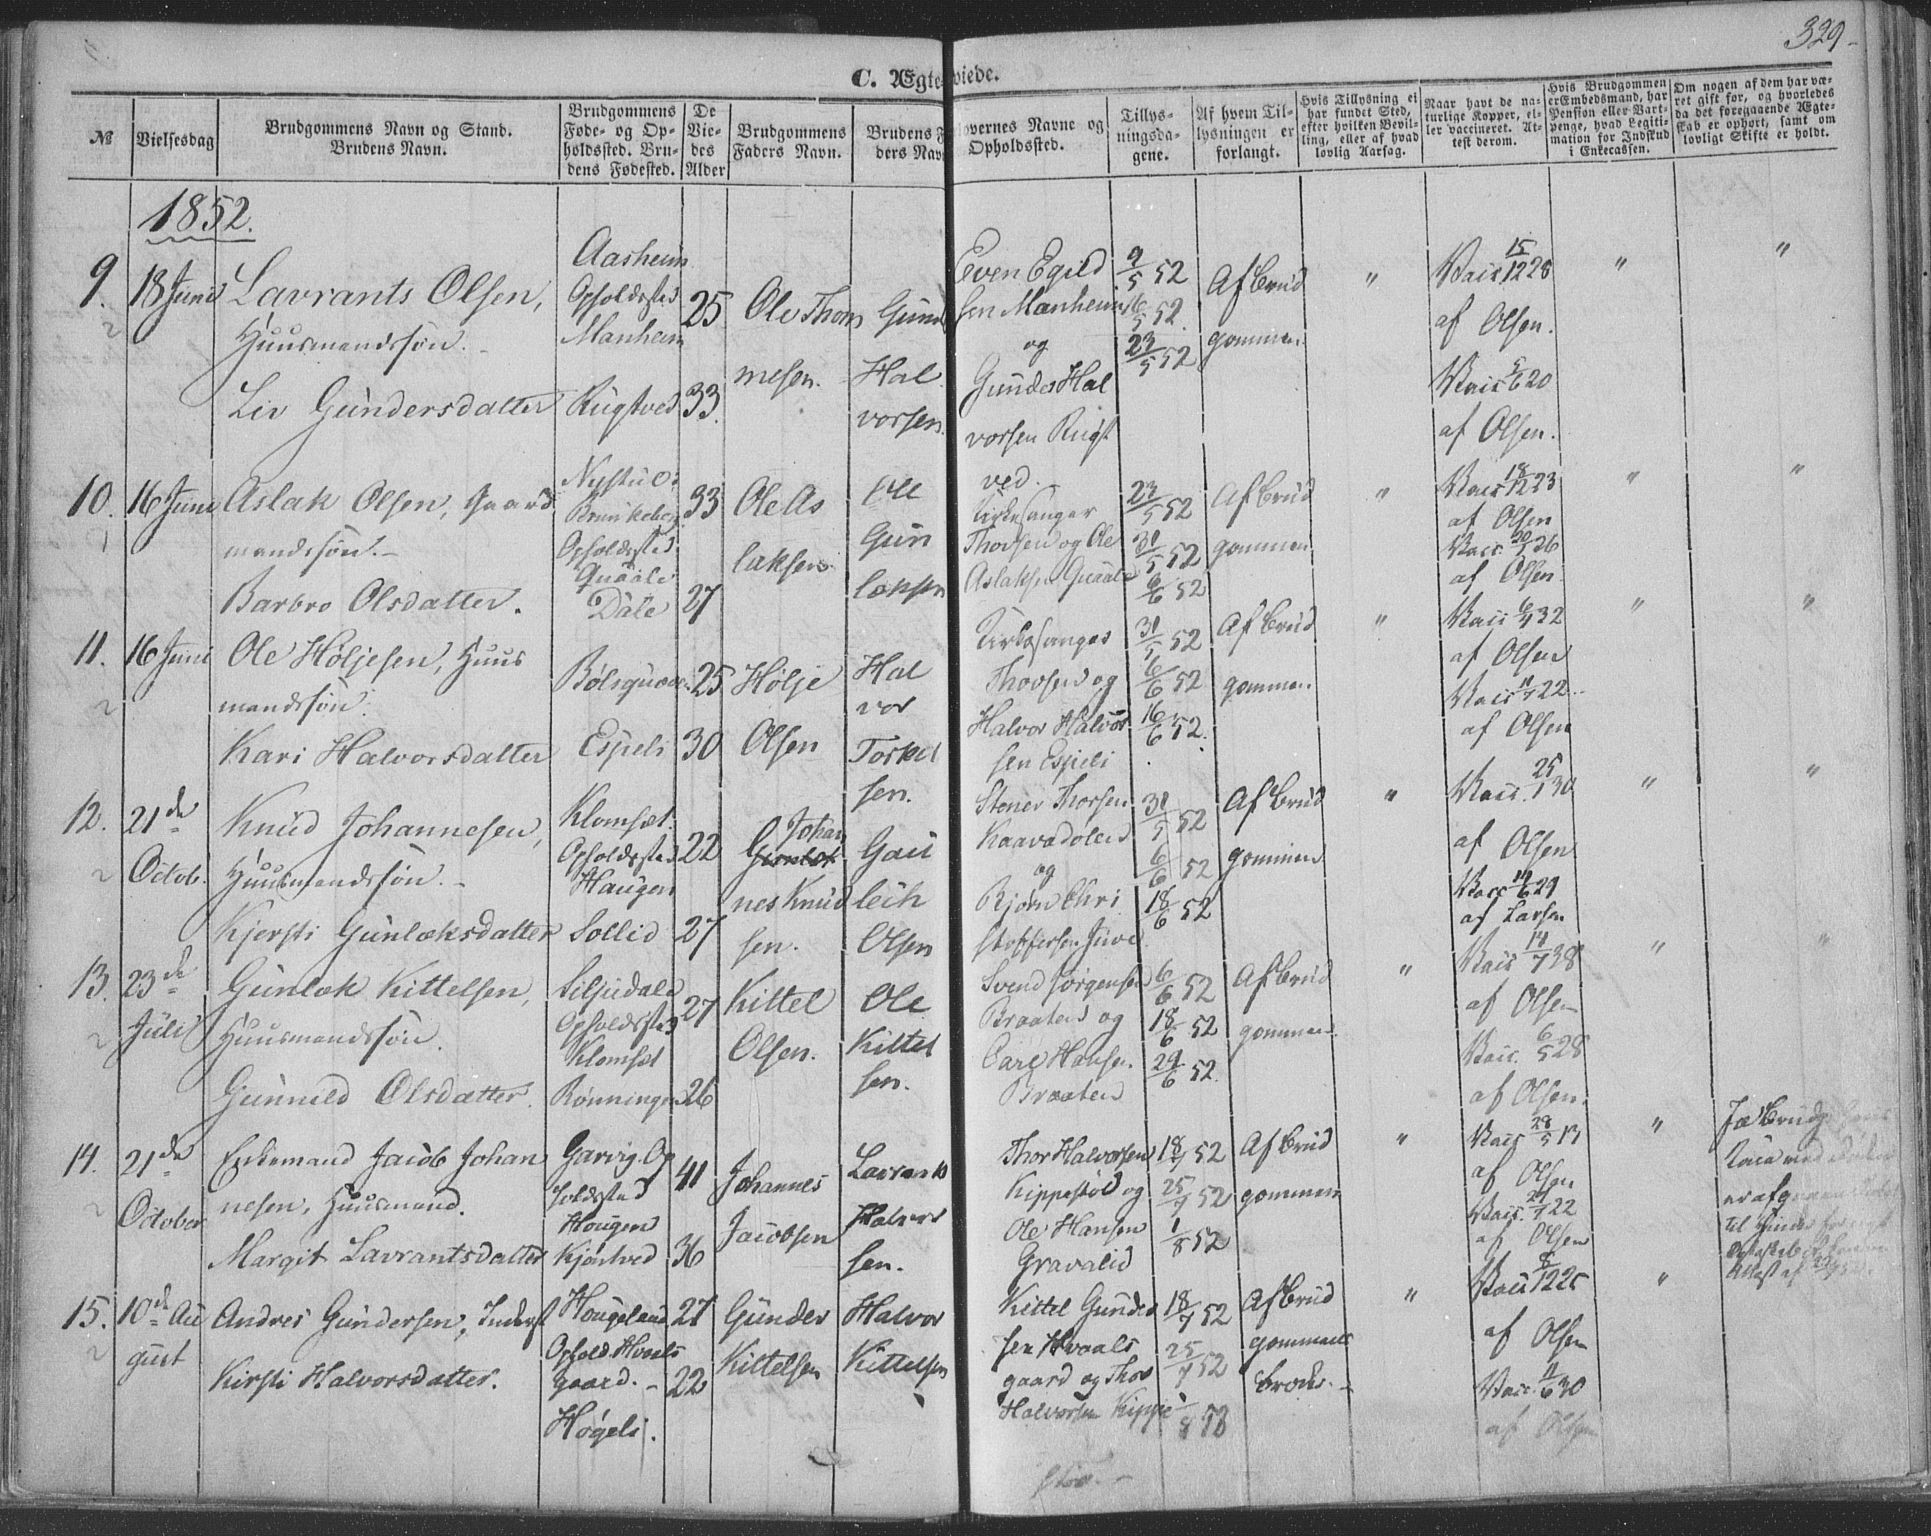 329
C. Ægteviede.
№
Vielsesdag
Brudgommens Navn og Stand.
Brudens Navn.
Brudgommens
Føde- og Op-
holdssted. Bru-
dens Fødested.
De
Vie-
des
Alder
Brudgommens
Faders Navn.
Brudens F
ders Nav
lovernes Navne og
Opholdssted.
Tillys-
ningsda-
gene.
Af hvem Til-
lysningen er
forlangt.
Hvis Tillysning ei
har fundet Sted,
efter hvilken Bevil-
ling, eller af hvad
lovlig Aarsag.
Naar havt de na-
turlige Kopper, el-
ler vaccineret. At-
test derom.
Hvis Brudgommen
er Embedsmand, har
Pension eller Vart-
penge, hvad Legiti-
mation for Indskud
i Enkecassen.
Om nogen af dem har væ-
ret gift før, og hvorledes
da det foregaaende Ægte-
skab er ophørt, samt om
lovligt Skifte er holdt.
1852.
9.
18 Juni
Lavrants Olsen,
Huusmandssøn.
Liv Gundersdatter
Aasheim
Opholdssted
Manheim
Rugstved
25
33
Ole Thom
mesen.
Gund
Hal
vorsen
Even Egild
sen Manheim
og
Gunder Hal
vorsen Rugst
ved.
9/5 52
16/5 52
23/5 52
Af Brud
gommen
"
Vacc 15/12 28
af Olsen.
Vacc 5/6 20
af Olsen.
"
"
10.
16 Juni
Aslak Olsen, Gaard
mandssøn.
Barbro Olsdatter.
Opholdssted
Quaale
Dale
33
27
Ole As
laksen
Ole
Gun
laksen
Kirkesanger
Thorsen og Ole
Aslaksen Quaale
23/5 52
31/5 52
6/6 52
Af Brud
gommen
"
Vacc 18/12 23
af Olsen
af Olsen
"
"
11.
16 Juni
Ole Høljesen, Huus
mandssøn.
Kari Halvorsdatter
Espeli
25
30
Hølje
Olsen
Hal
vor
Torkel
sen.
Kirkesanger
Thorsen og
Halvor Halvor
sen Espeli
31/5 52
6/6 52
16/6 52
Af Brud
gommen
"
af Olsen
af Olsen
"
"
12.
21de
Octob.
Knud Johannesen,
Huusmandssøn.
Kjersti Gunlæksdatter
Klomset.
Opholdssted
Haugen
Sollid
22
27
Johan
nes Knud
sen.
Gun
leik
Olsen
Stener Thorsen
Kaavadalen
og
Bjørn Chri
stoffersen Juve
31/5 52
6/6 52
18/6 52
Af Brud
gommen
"
af Olsen
af Larsen
"
"
13.
23de
Juli
Gunlæk Kittelsen,
Huusmandssøn.
Gunnild Olsdatter
Siljudale
Opholdssted
Klomset
Rønningen
27
26
Kittel
Olsen.
Ole
Kittel
sen.
Svend Jørgensen
Braaten og
Carl Hansen
Braaten
6/6 52
18/6 52
29/6 52
Af Brud
gommen
"
Vacc 14/7 38
af Olsen
Vacc. 6/5 28
af Olsen.
"
"
14.
21de
October
Enkemand Jacob Johan
nesen, Huusmand.
Margit Lavrantsdatter
Garvig. Op
holdssted
Haugen
Kjøntved
41
36
Johannes
Jacobsen
Lavrants
Halvor
sen.
Thor Halvorsen
Kippestøl og
Ole Hansen
Gravalid
18/7 52
25/7 52
1/8 52
Af Brud
gommen
"
Vacc 28/5 13
af Olsen
af Olsen
"
15.
10de Au
gust
Andres Gundersen, Inderst
Kirsti Halvorsdatter.
Haugeland
Ophold. Hvaals
gaard.
Høgeli.
27
22
Gunder
Kittelsen
Halvor
Kittelsen
Kittel Gunder
sen Hvaals
gaard og Thor
Halvorsen Kippe
støl.
18/7 52
25/7 52
1/8 52
Af Brud
gommens
broder.
"
af Olsen
Vacc. 11/6 30
af Olsen
"